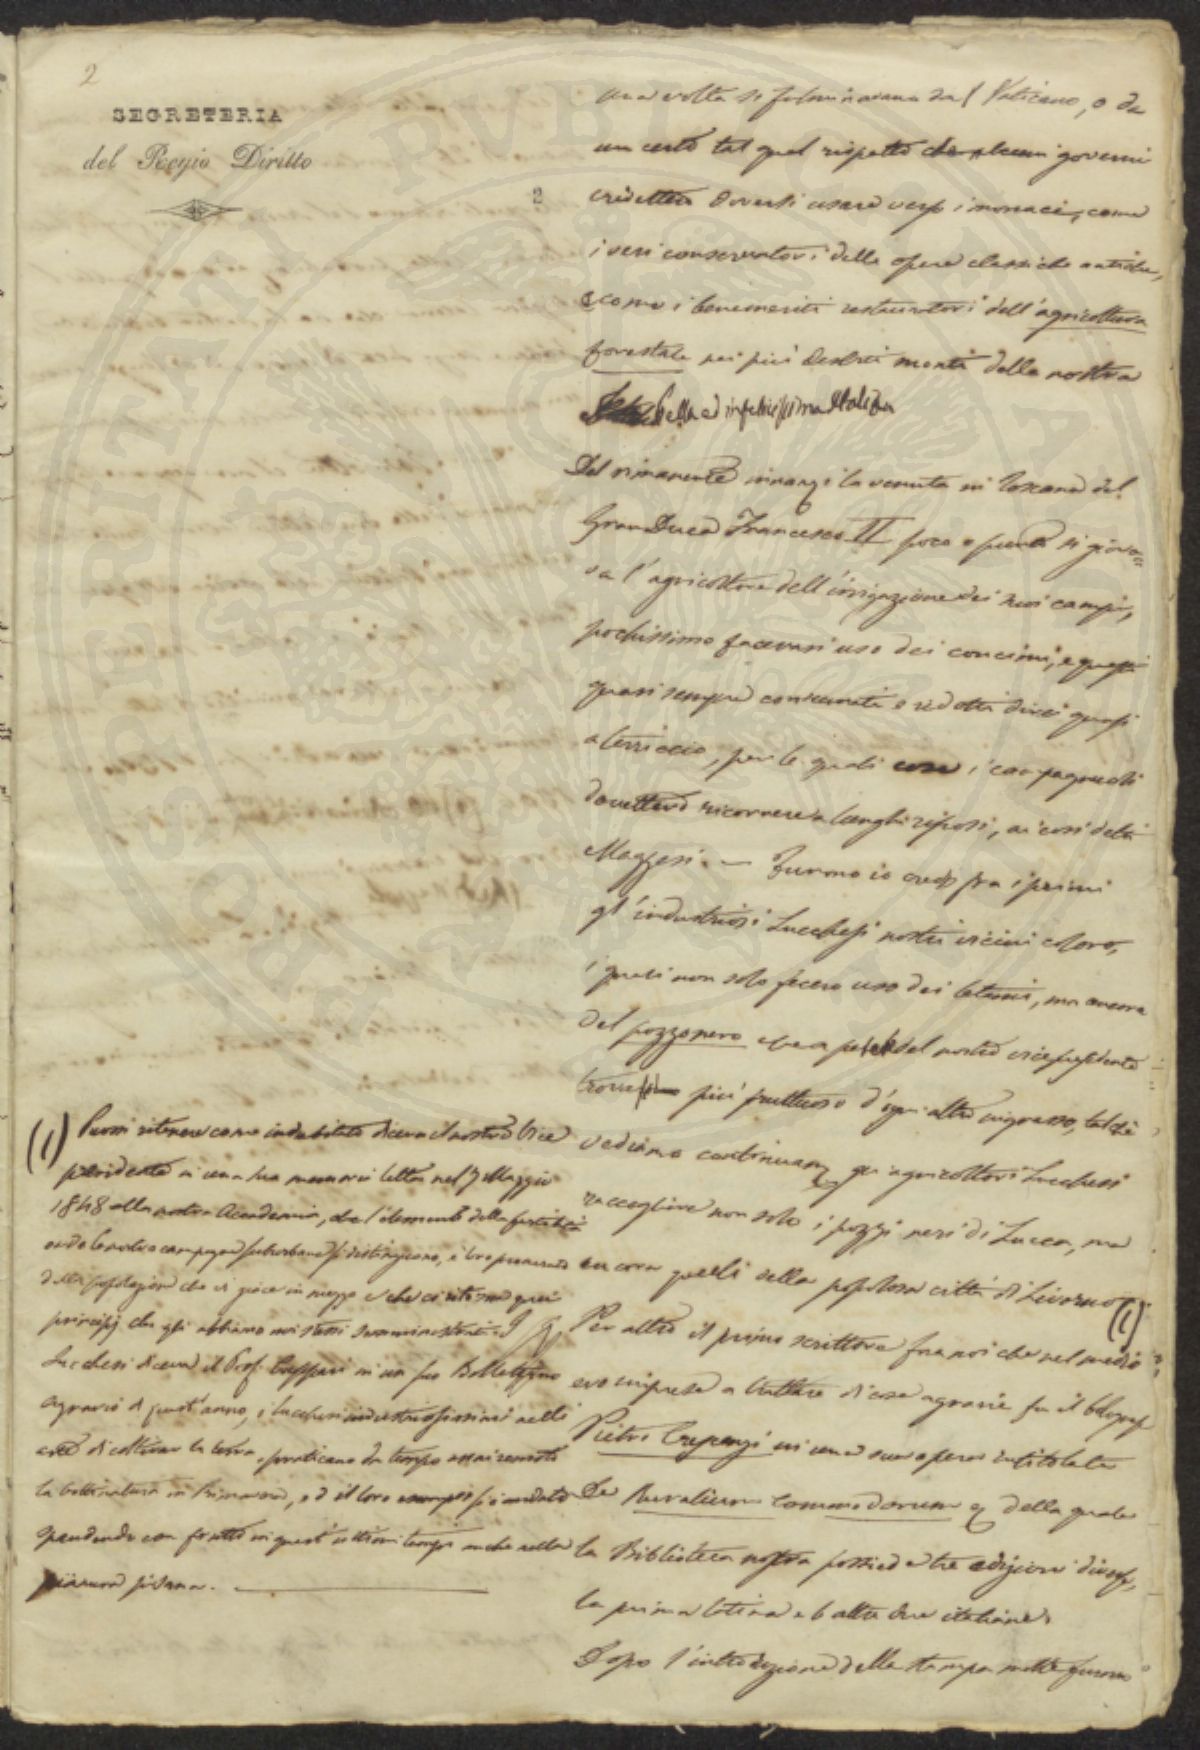 2
SEGRETERIA
del Regio Diritto
2
una volta si fulminavano dal Vaticano, o da
un certo tal qual rispetto che alcuni governi
credettero doversi usare verso i monaci, come
i veri conservatori delle opere classiche antiche,
e come i benemeriti restauratori dell'agricoltura
forestale nei più deserti monti della nostra
bella ed infelicissima Italia
Del rimanente innanzi la venuta in Toscana del
Gran Duca Francesco II poco o punto si giova=
va l'agricoltore dell'irrigazione dei suoi campi,
pochissimo facevasi uso dei concimi, e questi
quasi sempre consumati e ridotti direi quasi
a terriccio, per le quali cose i campagnuoli
dovettero ricorrere a lunghi riposi, ai così detti
Maggesi. — Furono io credo fra i primi
gl'industriosi Lucchesi nostri vicini coloro,
i quali non solo fecero uso dei letami, ma ancora
del pozzonero che a del nostro vicepresidente
più fruttuoso d'ogni altro ingrasso, talché
vediamo continuare gli agricoltori Lucchesi
raccogliere non solo i pozzi neri di Lucca, ma
ancora quelli della popolosa città di Livorno (1)
Per altro il primo scrittore fra noi che nel medio
evo imprese a trattare di cose agrarie fu il
Pietro Crescenzi in una sua opera intitolata
De Ruralium Commodorum e della quale
la Biblioteca nostra possiede tre edizioni diverse,
la prima latina e l'altre due italiane.
Dopo l'introduzione della stampa molti furono
(1) Puossi ritenere come indubitato diceva il nostro Vice
presidente in una sua memoria letta nel 7 Maggio
1848 alla nostra Accademia, che l'elemento della fertilità
onde le nostre campagne suburbane si distinguono, è loro procurato
dalla popolazione che vi giace in mezzo e che ci ritorna quei
principj che gli abbiamo noi stessi somministrati. I
Lucchesi diceva il Prof. in un suo Bollettino
Agrario di quest'anno, i Lucchesi industriosissimi nell'
arte di coltivar la terra, praticano da tempo assai remoto
la bottinatura in Primavera, ed il loro esempio si è andato
spandendo con frutto in quest'ultimi tempi anche nella
pianura pisana.